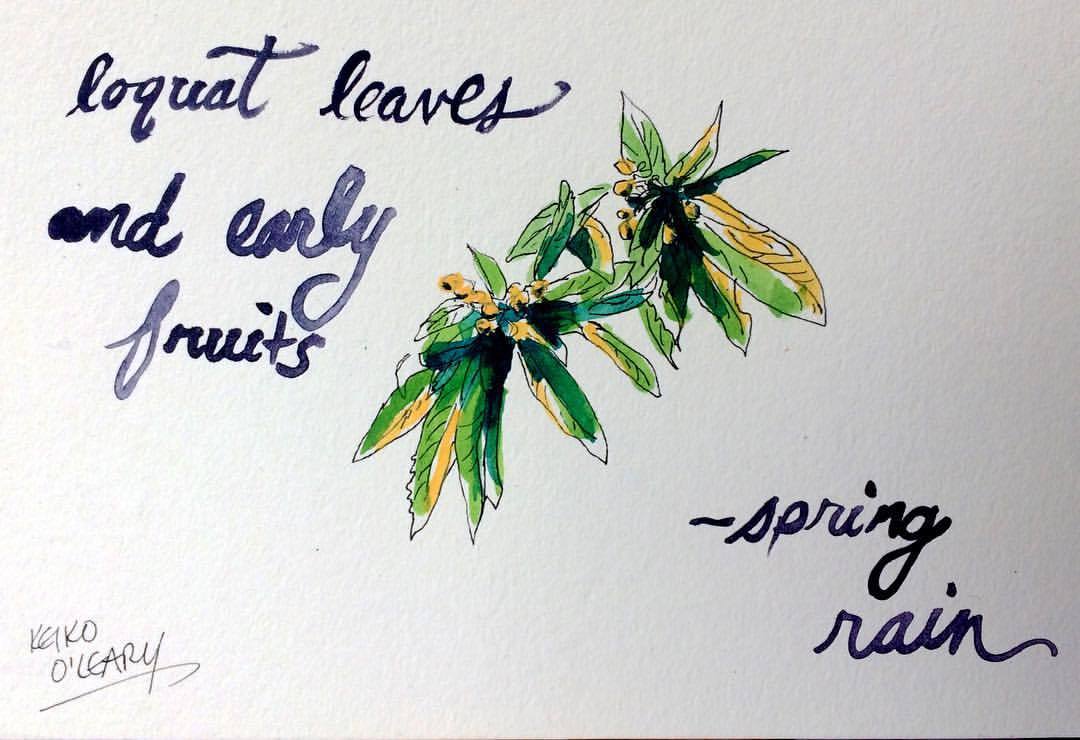 loquat leaves
and early
fruits
~spring
rain
KEIKO
O'LEARY